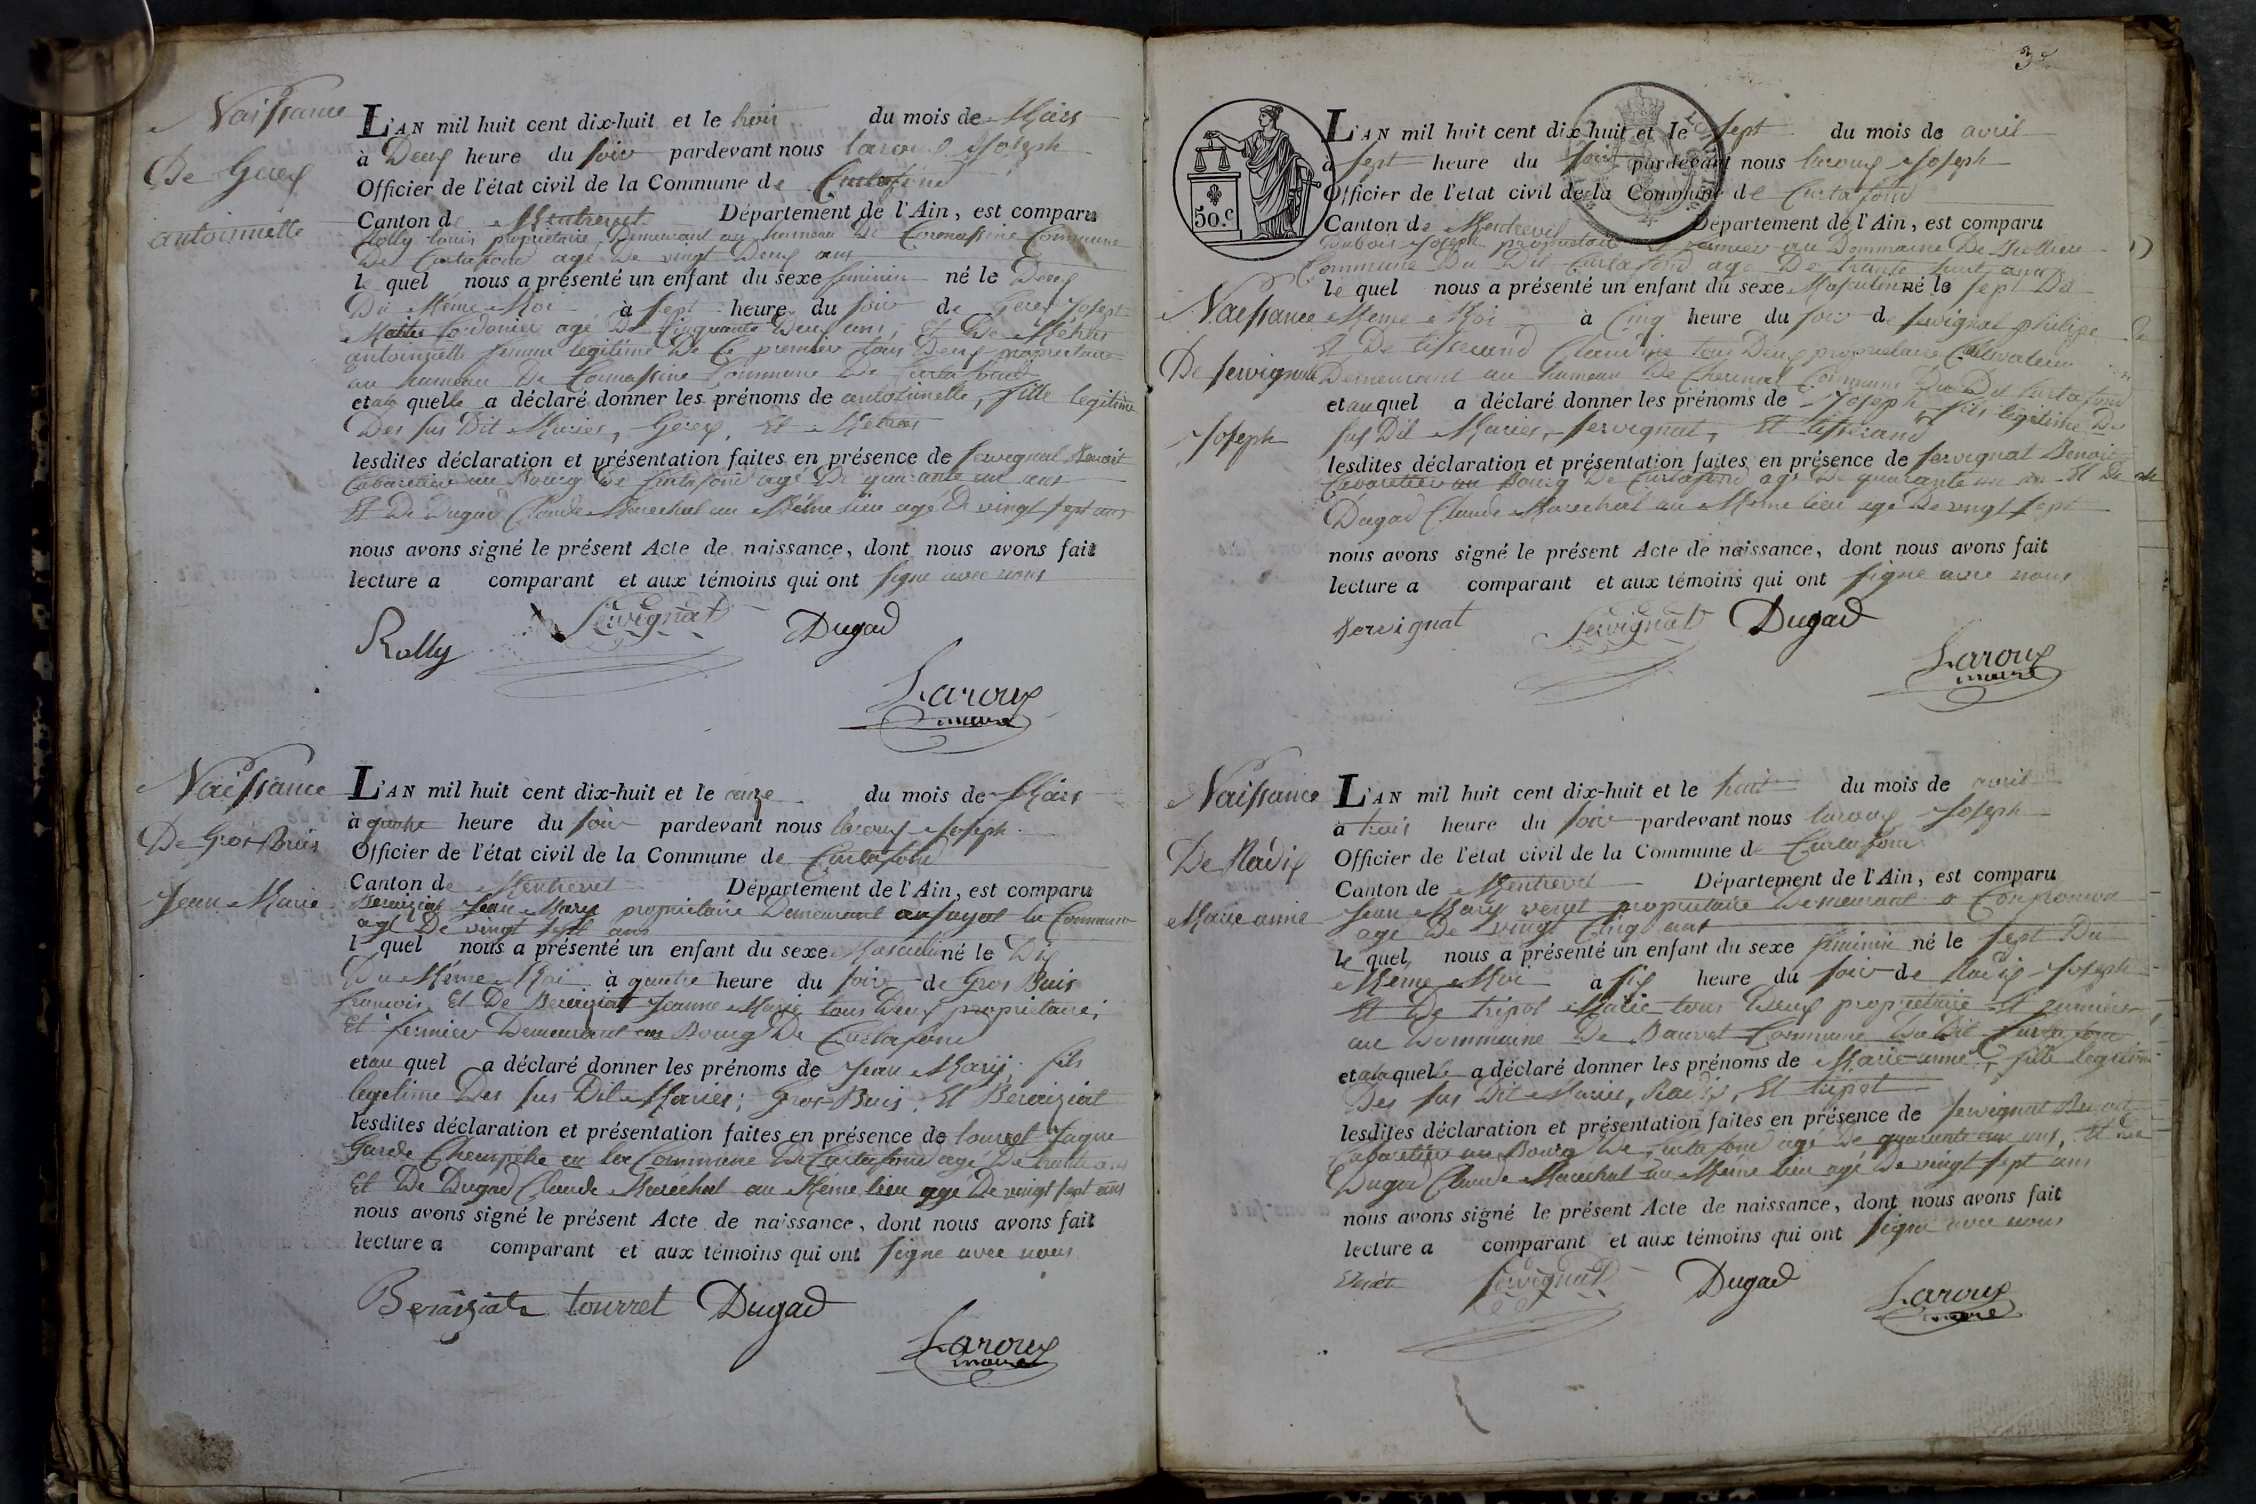 Naissance
De Gerex
antoinnette
L'AN mil huit cent dix-huit et le trois du mois de Mars
à Deux heure du soir pardevant nous laroux Joseph
Officier de l'état civil de la Commune de Curtafond
Canton de Montrevel Département de l'Ain, est comparu
Rolly louis propriétaire Demeurant au hameau De Cormassine Commune
De Curtafond agé De vingt Deux ans
le quel nous a présenté un enfant du sexe feminin né le Deux
Du Même Moi à sept heure du soir de Gerex Joseph
Maitre Cordonier agé De Cinquante Deux ans, Et De
antoinnette femme legitime De Ce premier tous Deux propriétaire
au hameau De Cormassine Commune De Curtafond
et a la quelle a déclaré donner les prénoms de antoinnette, fille legitime
Des sus Dit Maries, Gerex, Et
lesdites déclaration et présentation faites en présence de servignat Benoit
Cabaretier au Bourg De Curtafond agé De quarante un ans
Et De Dugad Claude Marechal au Même lieu agé De vingt sept ans
nous avons signé le présent Acte de naissance, dont nous avons fait
lecture a comparant et aux témoins qui ont signe avec nous
Rolly Servignat Dugad
Laroux
maire
Naissance
De Gros Buis
Jean Marie
L'AN mil huit cent dix-huit et le onze du mois de Mars
à quatre heure du soir pardevant nous laroux Joseph
Officier de l'état civil de la Commune de Curtafond
Canton de Montrevel Département de l'Ain, est comparu
Beraiziat Jean Marie proprietaire Demeurant au sayot la Commune
agé De vingt sept ans
l quel nous a présenté un enfant du sexe Masculin né le Dix
Du Même Moi à quatre heure du soir de Gros Buis
francois, Et De Beraiziat Jeanne Marie tous Deux propriétaire;
Et fermier Demeurant au Bourg De Curtafond
et au quel a déclaré donner les prénoms de Jean Marie; fils
legitime Des sus Dit Maries; Gros Buis, Et Beraiziat
lesdites déclaration et présentation faites en présence de tourret Jaque
Garde Champetre en la Commune De Curtafond agé De trente ans
Et De Dugad Claude Marechal au Même lieu agé De vingt sept ans
nous avons signé le présent Acte de naissance, dont nous avons fait
lecture a comparant et aux témoins qui ont signe avec nous
Beraiziat tourret Dugad
Laroux
maire
3e
50.c
Naissance
De servignat
Joseph
L'AN mil huit cent dix huit et le sept du mois de avril
à sept heure du soir pardevant nous laroux Joseph
Officier de l'état civil de la Commune de Curtafond
Canton de Montrevel Département de l'Ain, est comparu
Dubois Joseph proprietaire Et fermier au Dommaine De
Commune Du Dit Curtafond agé De trente huit ans
le quel nous a présenté un enfant du sexe Masculin né le sept Du
Meme Moi à Cinq heure du soir de servignat philipe
Et De tisserand Claudine tous Deux proprietaire Cultivateur
Demeurant au hameau De Cherinal Commune Du Dit Curtafond
et au quel a déclaré donner les prénoms de Joseph fils legitime De
sus Dit Maries, servignat, Et tisserand
lesdites déclaration et présentation faites en présence de servignat Benoit
Cabaretier au Bourg De Curtafond agé De quarante un an Et De
Dugad Claude Marechal au Meme lieu agé De vingt sept
nous avons signé le présent Acte de naissance, dont nous avons fait
lecture a comparant et aux témoins qui ont signe avec nous
Servignat Servignat Dugad
Laroux
maire
Naissance
De Radix
Marie anne
L'AN mil huit cent dix-huit et le huit du mois de avril
à trois heure du soir pardevant nous laroux Joseph
Officier de l'état civil de la Commune de Curtafond
Canton de Montrevel Département de l'Ain, est comparu
Jean Mary veret proprietaire Demeurant a Confrancon
agé De vingt Cinq ans
le quel nous a présenté un enfant du sexe feminin né le sept Du
Meme Moi à six heure du soir de Radix Joseph
Et De tripot Marie tous Deux proprietaire Et fermier
au Dommaine De Bauvet Commune Du Dit Curtafond
et a la quelle a déclaré donner les prénoms de Marie anne, fille legitime
Des sus Dit Maries, Radix, Et tripot
lesdites déclaration et présentation faites en présence de servignat Benoit
Cabaretier au Bourg De Curtafond agé De quarante un ans, Et De
Dugad Claude Marechal au Meme lieu agé De vingt sept ans
nous avons signé le présent Acte de naissance, dont nous avons fait
lecture a comparant et aux témoins qui ont signe avec nous
Servignat Dugad
Laroux
maire